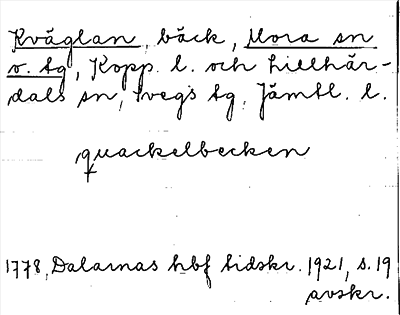 Kväglan, bäck, Mora sn
o. tg, Kopp. l. och Lillhär-
dals sn, Svegs tg, Jämtl. l.
quackelbecken
1778, Dalarnas hbf tidskr. 1921, s. 19
avskr.